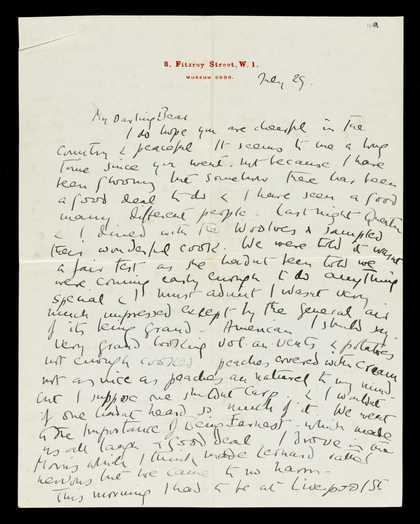 8, Fitzroy Street, W.1.
MUSEUM
July 29.
My Darling Bear
I do hope you are cheerful in the
Country & peaceful It seems to me a long
time since you went. not because I have
been gloomy but somehow there has been
a good deal to do & I have seen a good
many different people. Last night Quentin
& I dined with the Woolves & sampled
their wonderful cook. We were told it wasn't
a fair test as she hadn't been told we
were coming early enough to do anything
special & I must admit I wasn't very
much impressed except by the general air
of its being grand - American I should say.
Very grand looking vol au vents & potatoes
not enough cooked peaches covered with cream
not as nice as peaches au naturel to my mind
but I suppose one shouldn't carp. & I wouldn't
if one hadn't heard so much of it. We went
to the Importance of Being Earnest - which made
us all laugh a good deal I drove in the
Morris which I think made Leonard rather
nervous but we came to no harm -
This morning I had to be at Liverpool St